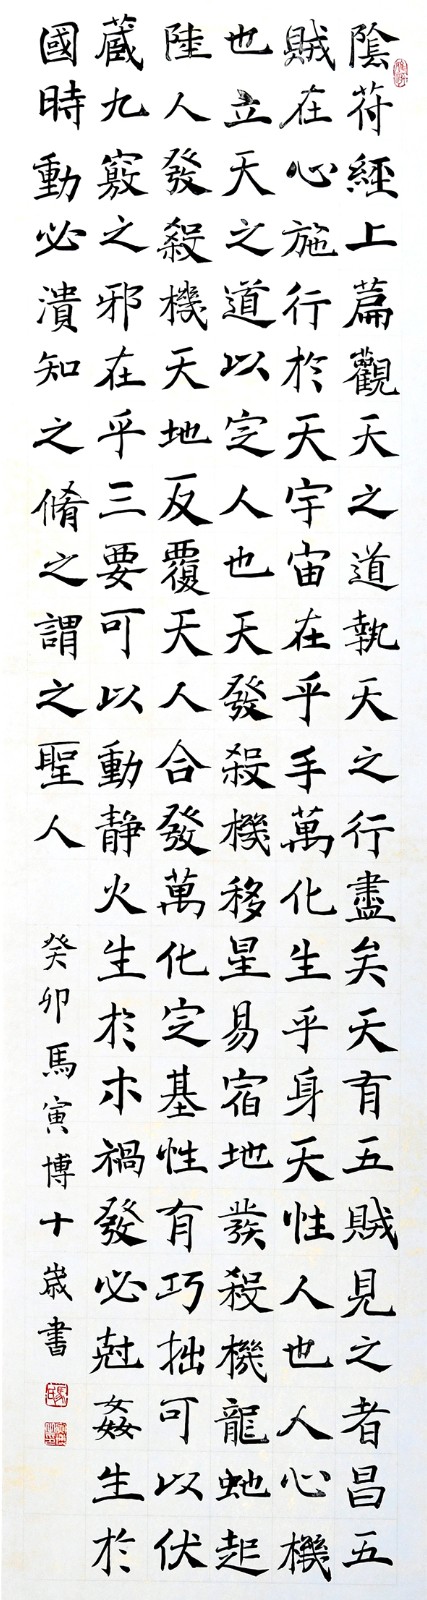 陰苻經上篇觀天之道執天之行盡矣天有五賊見之者昌五
賊在心施行於天宇宙在乎手萬化生乎身天性人也人心機
也立天之道以定人也天發殺機移星易宿地發殺機龍虵起
陸人發殺機天地反覆天人合發萬化定基性有巧拙可以伏
蔵九竅之邪在乎三要可以動静火生於木禍發必尅姦生於
國時動必潰知之脩之謂之聖人
癸卯馬寅博十歲書